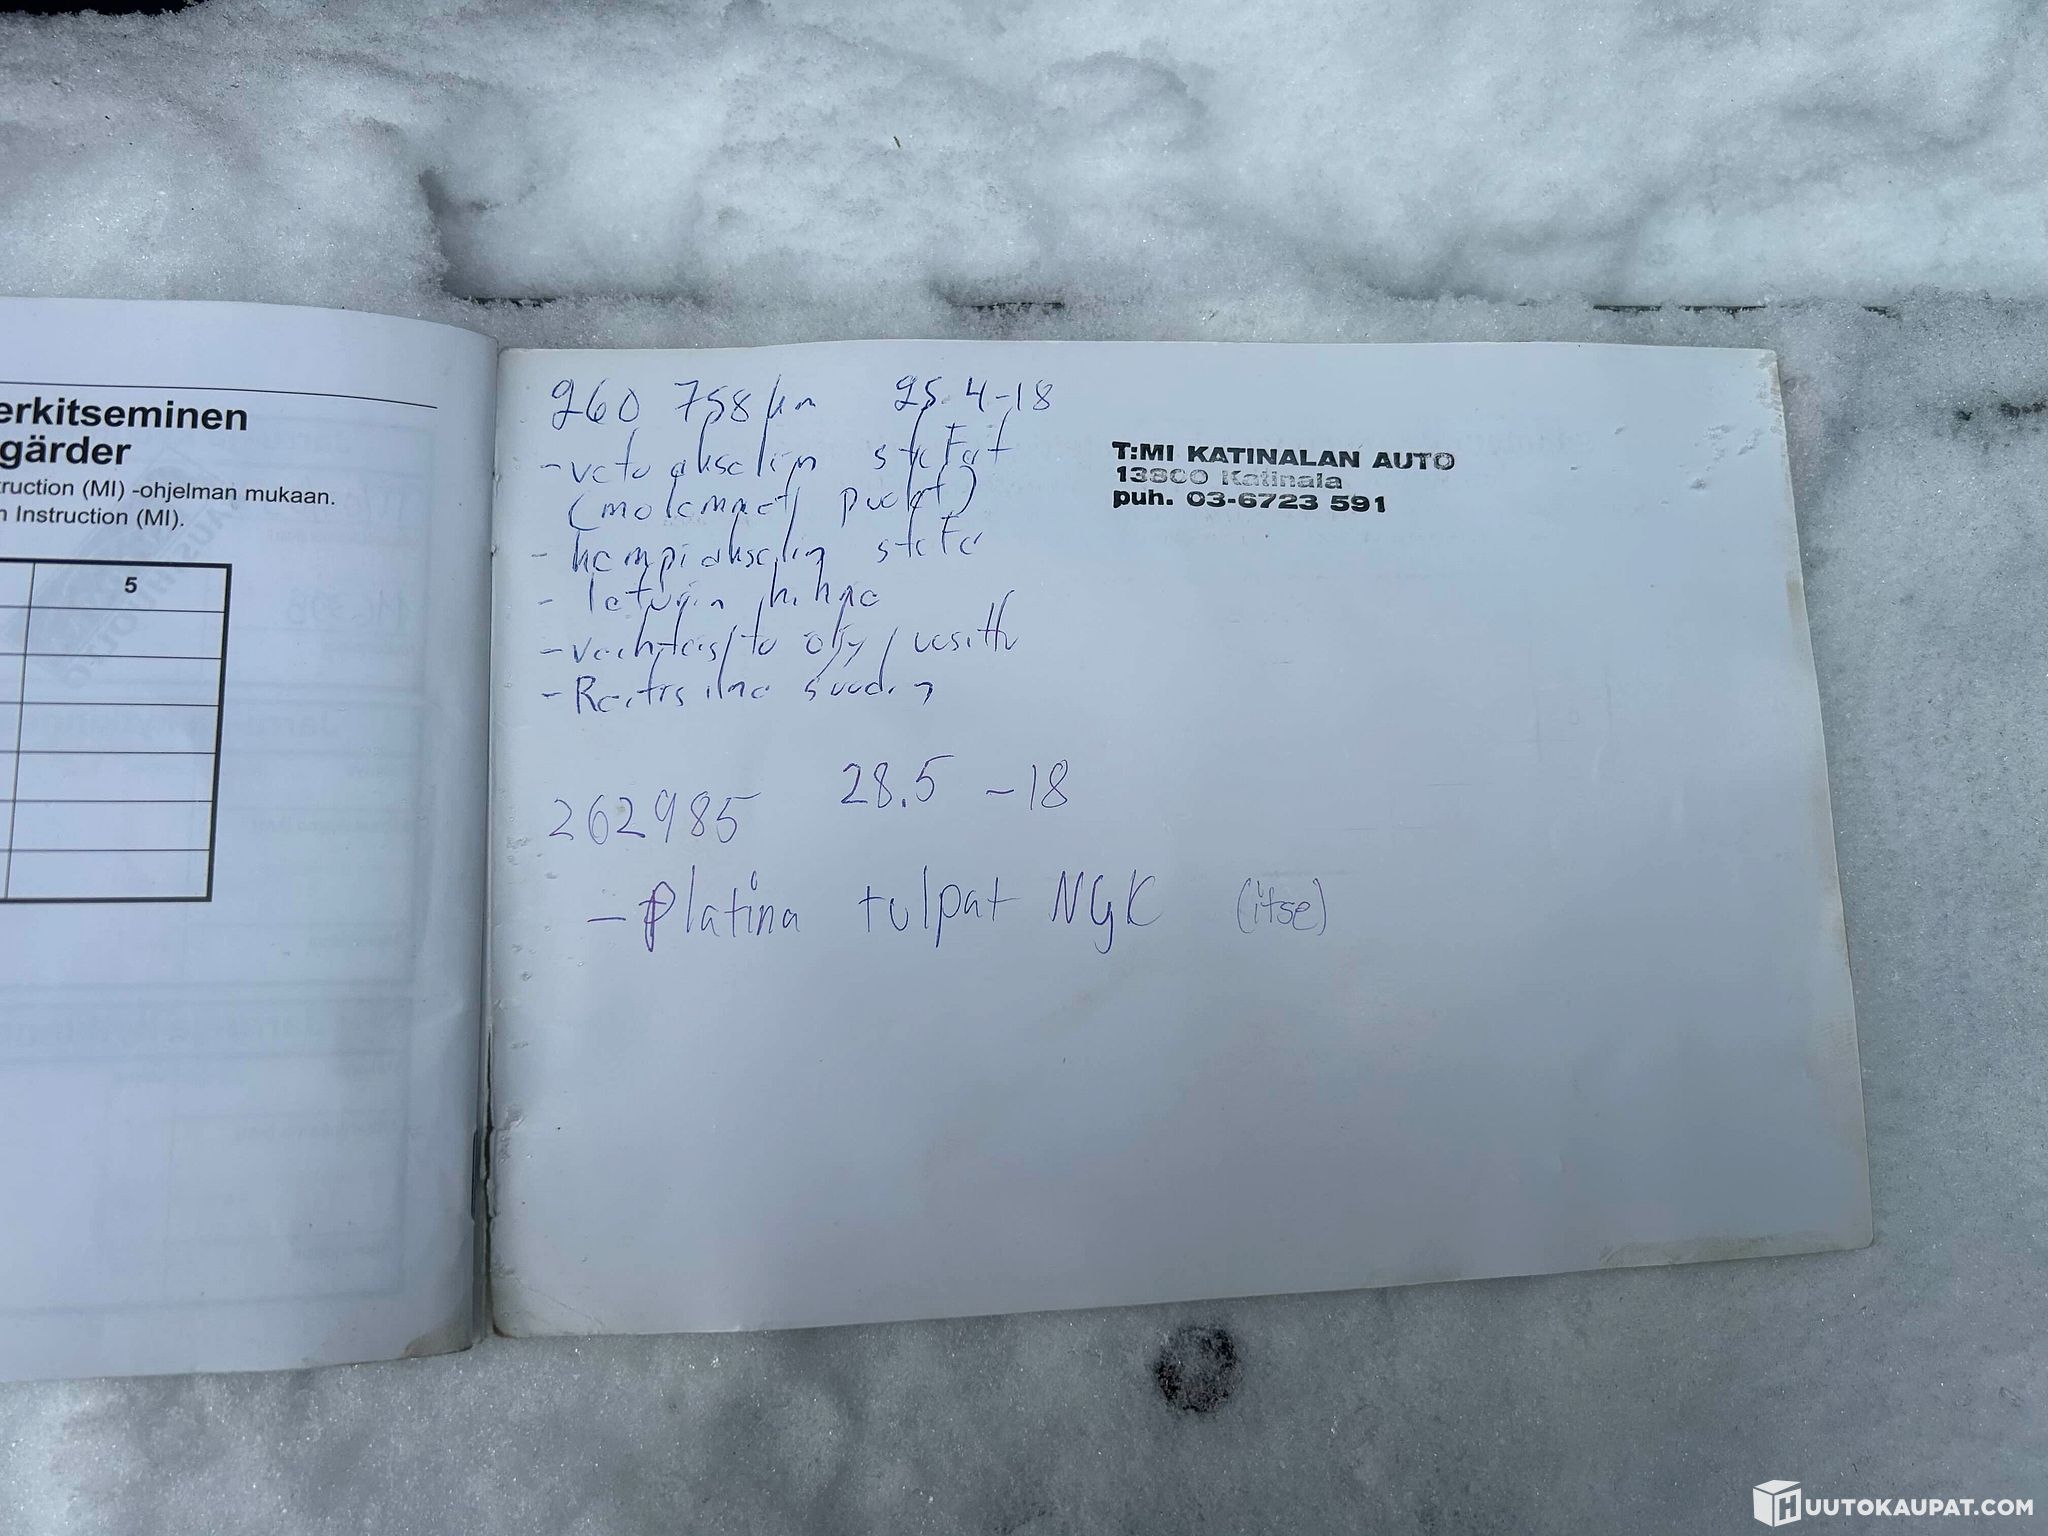 erkitseminen
gärder
ruction (MI) -ohjelman mukaan.
n Instruction (MI).
5
260 758 km 25.4-18
- veto akselin stefat
(molemmat puolet)
- kampiakselin stefa
- laturin hihna
- vaihteisto öljy
- Raitisilma suodin
T:MI KATINALAN AUTO
13800 Katinala
puh. 03-6723 591
262985 28.5 -18
- Platina tulpat NGK (itse)
HUUTOKAUPAT.COM